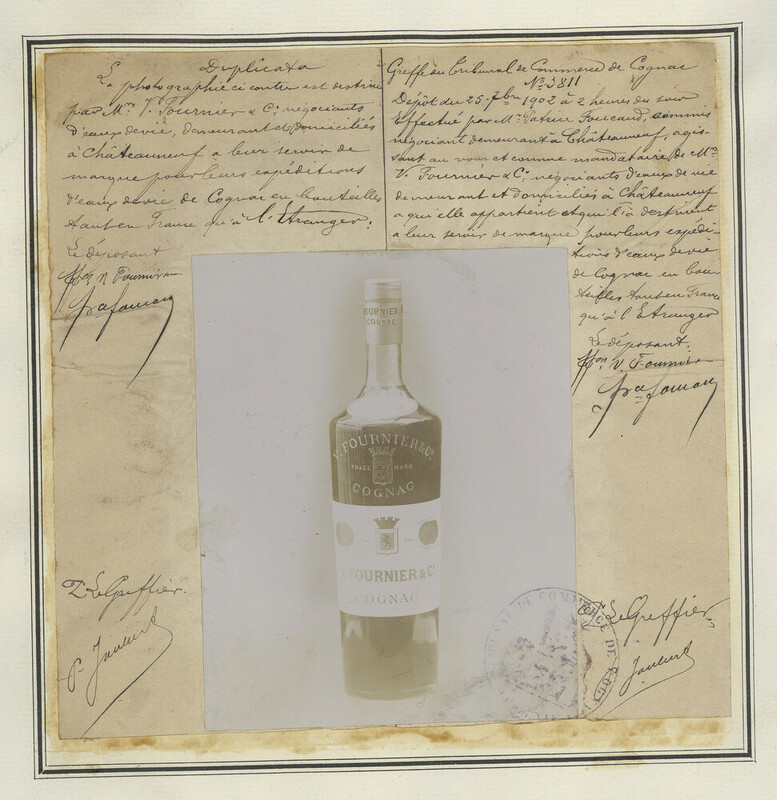 Duplicata
La photographie ci contre est destinée
par Mrs V. Fournier & Co négociants
d'eaux de vie, demeurant et domiciliés
à Châteauneuf a leur servir de
marque pour leurs expéditions
d'eaux de vie de Cognac en bouteilles
tant en France qu'à l'Etranger.
Le déposant
Pon V Fournier
Greffe du Tribunal de Commerce de Cognac
No 3811
Dépôt du 25 7bre 1902 à 2 heures du soir
Effectué par Mr Foucaud, commis
négociant demeurant à Châteauneuf, agis-
sant au nom et comme mandataire de Mrs
V. Fournier & Co négociants d'eaux de vie
demeurant et domiciliés à Châteauneuf
a qui elle appartient et qui l'a destinent
a leur servir de marque pour leurs expédi-
tions d'eaux de vie
de Cognac en bou-
teilles tant en France
qu'à l'Etranger
Le déposant.
Pon V. Fournier
FOURNIER &
COGNAC
V. FOURNIER & Co
TRADE MARK
COGNAC
V. FOURNIER & Co
COGNAC
P. Le Greffier.
P. Jaulert
Le Greffier.
Jaulert
TRIBUNAL DE COMMERCE DE COGNAC